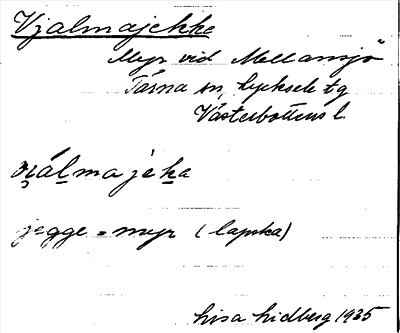 Vjalmajekke
Myr vid Mellansjö
Tärna sn, Lycksele tg
Västerbottens l.
jegge = myr (lapska)
Lisa Lidberg 1935